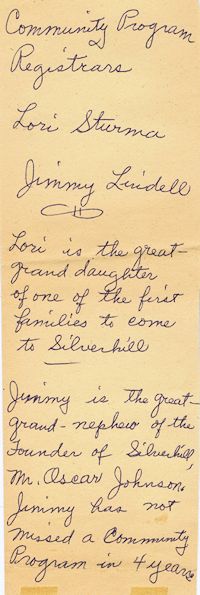 Community Program
Registrars
Lori Sturma
Jimmy Lindell
Lori is the great-
grand daughter
of one of the first
families to come
to Silverhill
Jimmy is the great-
grand-nephew of the
Founder of Silverhill,
Mr. Oscar Johnson.
Jimmy has not
missed a Community
Program in 4 years.